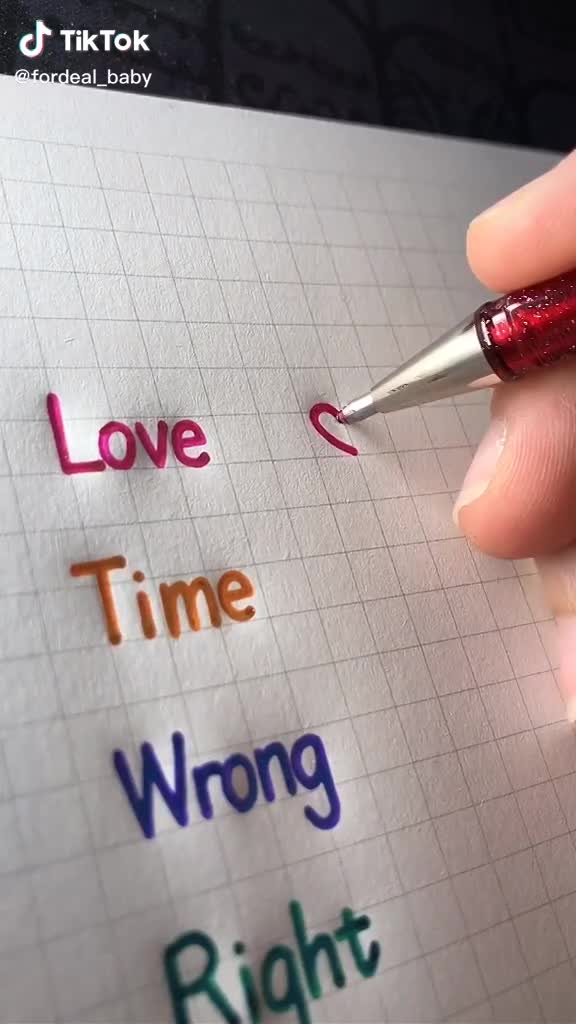 TikTok
@fordeal_baby
Love
Time
Wrong
Right